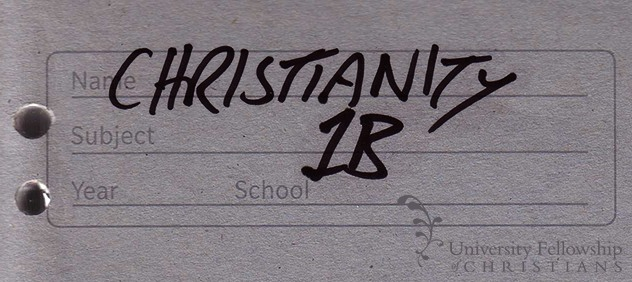 Name
CHRISTIANITY
Subject
1B
Year School
University Fellowship
of CHRISTIANS